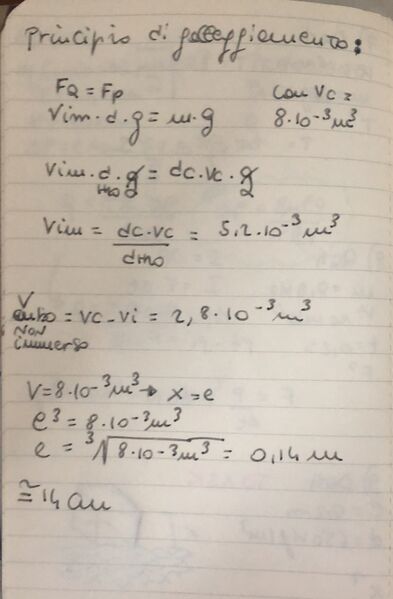 Principio di galleggiamento:
FA = Fp con Vc =
Vim · d · g = m · g 8·10⁻³m³
Vim · d H₂O · g = dc · Vc · g
Vim = dc·Vc / dH₂O = 5,2·10⁻³m³
V cubo NON immerso = Vc - Vi = 2,8·10⁻³m³
V = 8·10⁻³m³ → x = e
e³ = 8·10⁻³m³
e = ³√8·10⁻³m³ = 0,14 m
≅ 14 cm